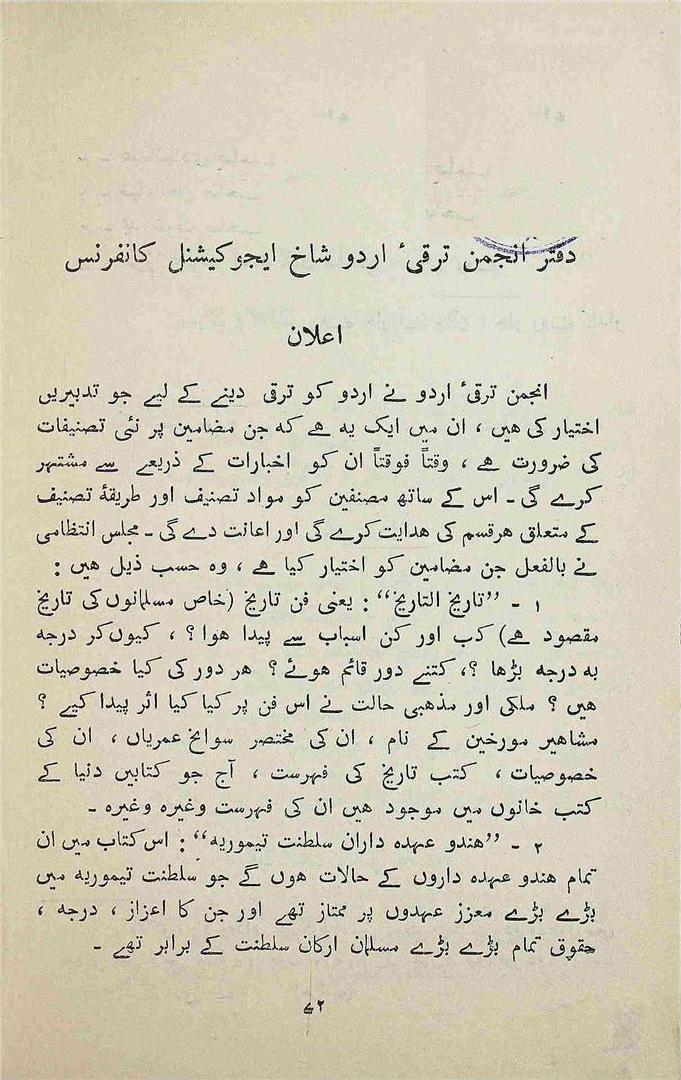 دفتر انجمن ترقیٔ اردو شاخ ایجوکیشنل کانفرنس
اعلان
انجمن ترقیٔ اردو نے اردو کو ترقی دینے کے لیے جو تدبیریں
اختیار کی ہیں ، ان میں ایک یہ ہے کہ جن مضامین پر نئی تصنیفات
کی ضرورت ہے ، وقتاً فوقتاً ان کو اخبارات کے ذریعے سے مشتہر
کرے گی ۔ اس کے ساتھ مصنفین کو مواد تصنیف اور طریقۂ تصنیف
کے متعلق ہر قسم کی ہدایت کرے گی اور اعانت دے گی ۔ مجلس انتظامی
نے بالفعل جن مضامین کو اختیار کیا ہے ، وہ حسب ذیل ہیں :
۱ ۔ ”تاریخ التاریخ“ : یعنی فن تاریخ (خاص مسلمانوں کی تاریخ
مقصود ہے) کب اور کن اسباب سے پیدا ہوا ؟ ، کیوں کر درجہ
بہ درجہ بڑھا ؟، کتنے دور قائم ہوئے ؟ ہر دور کی کیا خصوصیات
ہیں ؟ ملکی اور مذہبی حالت نے اس فن پر کیا کیا اثر پیدا کیے ؟
مشاہیر مورخین کے نام ، ان کی مختصر سوانح عمریاں ، ان کی
خصوصیات ، کتب تاریخ کی فہرست ، آج جو کتابیں دنیا کے
کتب خانوں میں موجود ہیں ان کی فہرست وغیرہ وغیرہ ۔
۲ ۔ ”ہندو عہدہ داران سلطنت تیموریہ“ : اس کتاب میں ان
تمام ہندو عہدہ داروں کے حالات ہوں گے جو سلطنت تیموریہ میں
بڑے بڑے معزز عہدوں پر ممتاز تھے اور جن کا اعزاز ، درجہ ،
حقوق تمام بڑے بڑے مسلمان ارکان سلطنت کے برابر تھے ۔
۷۲